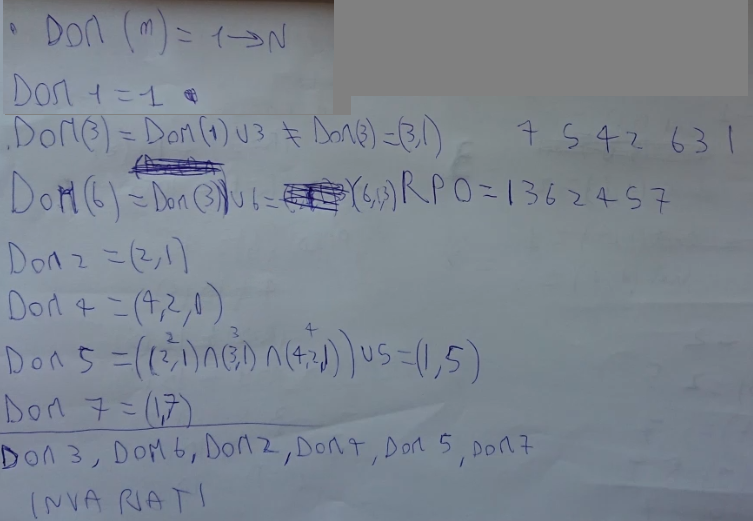 • DOM (n) = 1→N
DOM 1 = 1
DOM(3) = DOM(1) ∪ 3 ≠ DOM(3) = (3,1) 7 5 4 2 6 3 1
DOM(6) = DOM(3) ∪ 6 = (6,13) RPO = 1 3 6 2 4 5 7
DOM 2 = (2,1)
DOM 4 = (4,2,1)
2 3 4
DOM 5 = ((2,1) ∩ (3,1) ∩ (4,2,1)) ∪ 5 = (1,5)
DOM 7 = (1,7)
DOM 3, DOM 6, DOM 2, DOM 4, DOM 5, DOM 7
INVARIATI